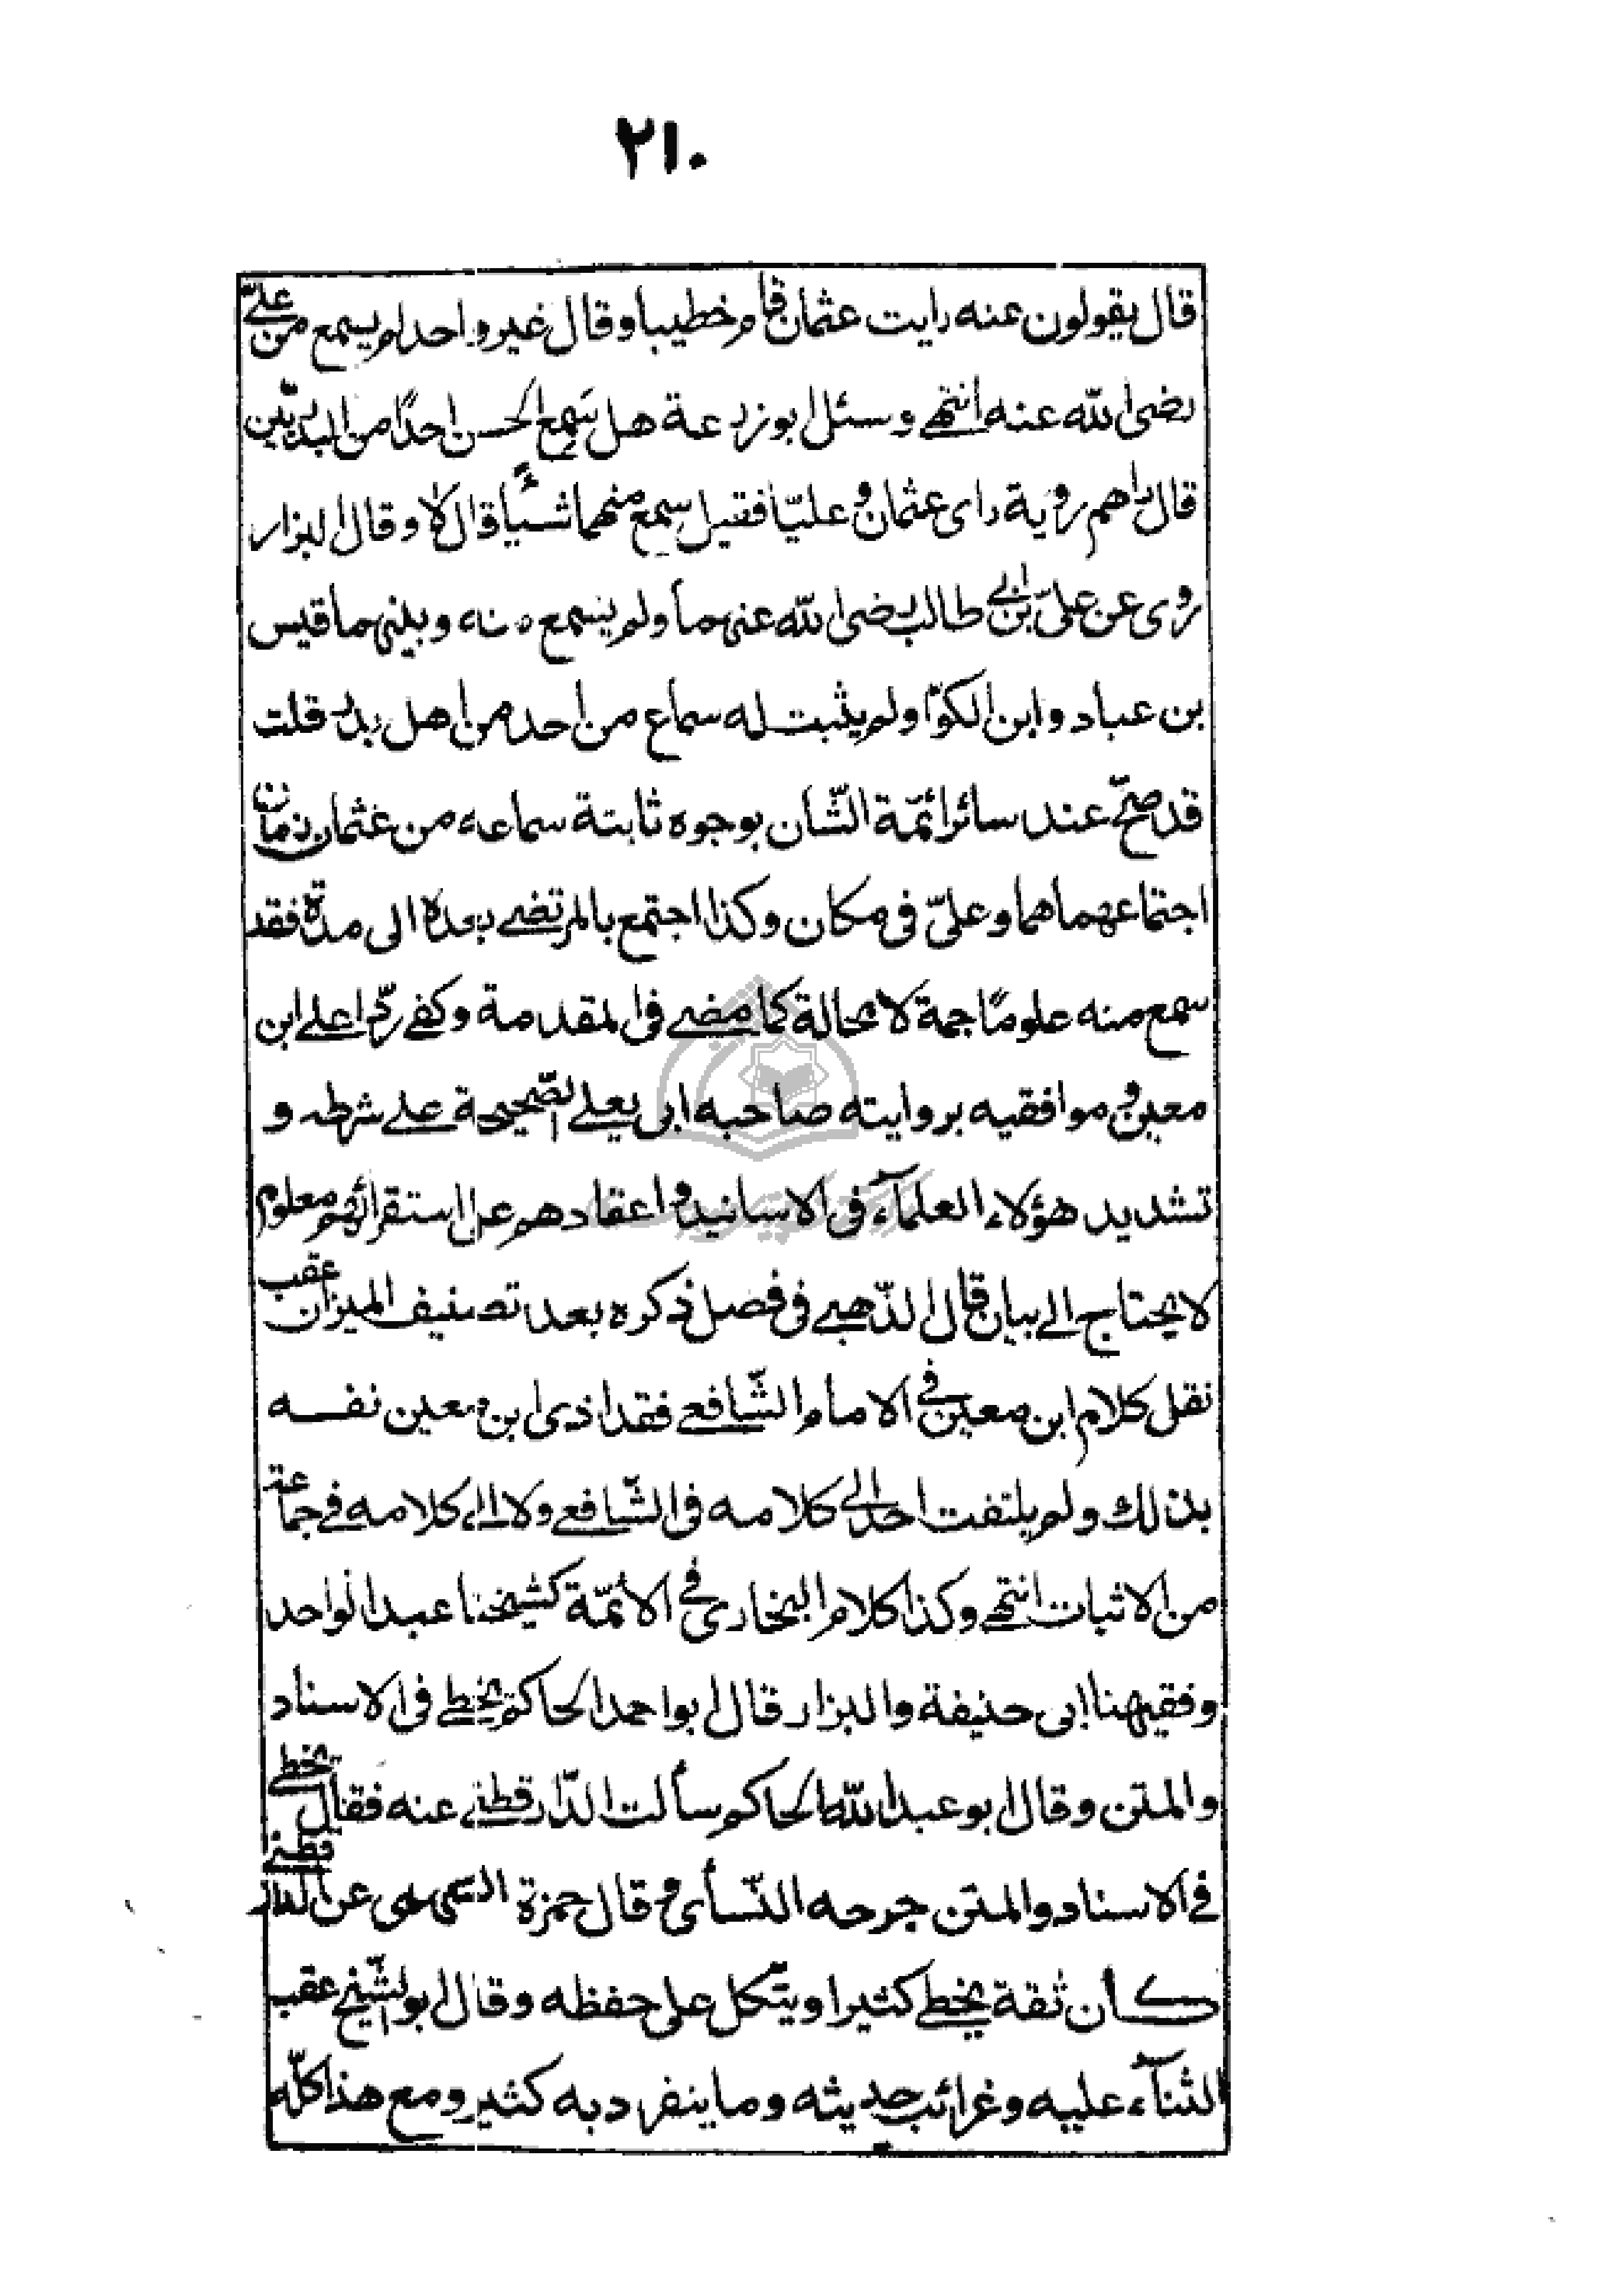 ۲۱۰
قال يقولون عنه رايت عثمان قام خطيبا وقال غير واحد لم يسمع من علىّ
رضى الله عنه انتهى وسئل ابو زرعة هل سمع الحسن احدًا من البدريّين
قال راهم رؤية راى عثمان وعليّا فقيل سمع منهما شيئًا قال لا وقال البزار
روى عن علىّ بن ابى طالب رضى الله عنهما ولم يسمع منه وبينهما قيس
بن عباد وابن الكوّا ولم يثبت له سماع من احد من اهل بدر قلت
قد صحّ عند سائر ائمّة الشّان بوجوه ثابتة سماعه من عثمان زمان
اجتماعهما هما وعلىّ فى مكان وكذا اجتمع بالمرتضى بعده الى مدّة فقد
سمع منه علومًا جمة لا محالة كما مضى فى المقدمة وكفى ردّا على ابن
معين وموافقيه بروايته صاحبه ابى يعلى الصّحيحة على شرطه و
تشديد هؤلاء العلمآء فى الاسانيد واعتقادهم على استقرائهم معلوم
لا يحتاج الى بيان قال الذّهبى فى فصل ذكره بعد تصنيف الميزان عقب
نقل كلام ابن معين فى الامام الشّافعى فقد اذى ابن معين نفسه
بذلك ولم يلتفت احد الى كلامه فى الشّافعى ولا الى كلامه فى جماعة
من الاثبات انتهى وكذا كلام البخارى فى الائمّة كشيخنا عبد الواحد
وفقيهنا ابى حنيفة والبزار قال ابو احمد الحاكم يخطى فى الاسناد
والمتن وقال ابو عبد الله الحاكم سألت الدّارقطنى عنه فقال يخطى
فى الاسناد والمتن جرحه النّسأى وقال حمزة السهمى عن الدارقطنى
كان ثقة يخطى كثيرا ويتّكل على حفظه وقال ابو الشّيخ عقب
الثنآء عليه وغرائب حديثه وما ينفرد به كثير ومع هذا كلّه